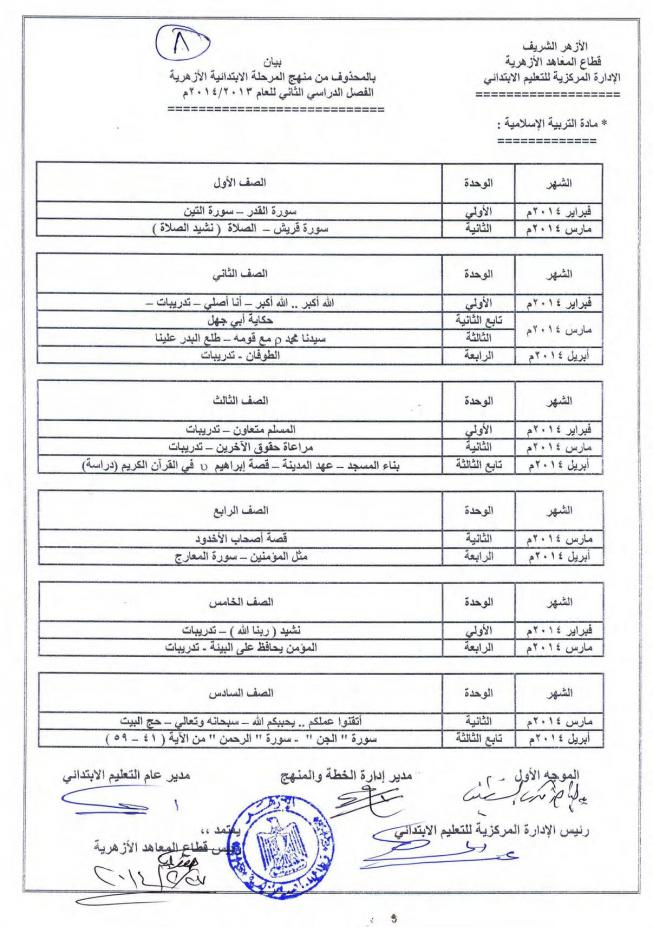 ٨
الأزهر الشريف
قطاع المعاهد الأزهرية
الإدارة المركزية للتعليم الابتدائي
====================
بيان
بالمحذوف من منهج المرحلة الابتدائية الأزهرية
الفصل الدراسي الثاني للعام ٢٠١٤/٢٠١٣م
==============================
* مادة التربية الإسلامية :
==============
الشهر الوحدة الصف الأول
فبراير ٢٠١٤م الأولي سورة القدر – سورة التين
مارس ٢٠١٤م الثانية سورة قريش – الصلاة ( نشيد الصلاة )
الشهر الوحدة الصف الثاني
فبراير ٢٠١٤م الأولي الله أكبر .. الله أكبر – أنا أصلي – تدريبات –
مارس ٢٠١٤م تابع الثانية حكاية أبي جهل
الثالثة سيدنا محمد ρ مع قومه – طلع البدر علينا
أبريل ٢٠١٤م الرابعة الطوفان - تدريبات
الشهر الوحدة الصف الثالث
فبراير ٢٠١٤م الأولي المسلم متعاون – تدريبات
مارس ٢٠١٤م الثانية مراعاة حقوق الآخرين – تدريبات
أبريل ٢٠١٤م تابع الثالثة بناء المسجد – عهد المدينة – قصة إبراهيم υ في القرآن الكريم (دراسة)
الشهر الوحدة الصف الرابع
مارس ٢٠١٤م الثانية قصة أصحاب الأخدود
أبريل ٢٠١٤م الرابعة مثل المؤمنين – سورة المعارج
الشهر الوحدة الصف الخامس
فبراير ٢٠١٤م الأولي نشيد ( ربنا الله ) – تدريبات
مارس ٢٠١٤م الرابعة المؤمن يحافظ على البيئة - تدريبات
الشهر الوحدة الصف السادس
مارس ٢٠١٤م الثانية أتقنوا عملكم .. يحببكم الله – سبحانه وتعالي – حج البيت
أبريل ٢٠١٤م تابع الثالثة سورة " الجن " - سورة " الرحمن " من الآية ( ٤١ – ٥٩ )
الموجه الأول مدير إدارة الخطة والمنهج مدير عام التعليم الابتدائي
رئيس الإدارة المركزية للتعليم الابتدائي يعتمد ،،
رئيس قطاع المعاهد الأزهرية